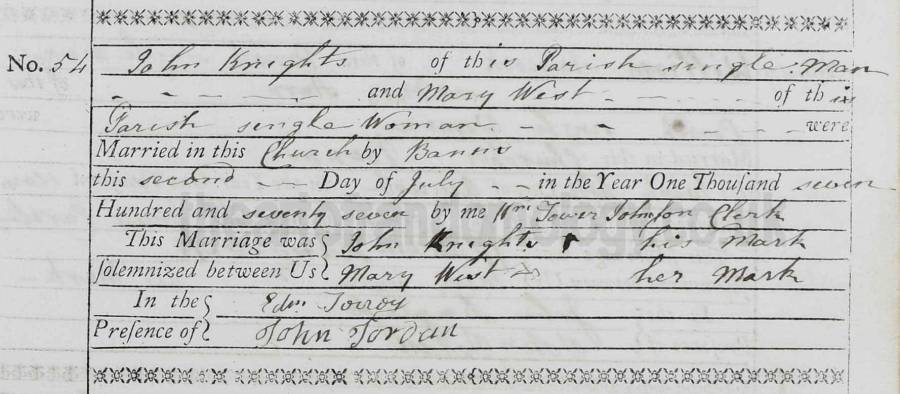 No. 54 John Knights of this Parish single Man
and Mary West of this
Parish single Woman were
Married in this Church by Banns
this second Day of July in the Year One Thousand seven
Hundred and seventy seven by me Wm Tower Johnson Clerk
This Marriage was John Knights his Mark
solemnized between Us Mary West her Mark
In the Edm
Presence of John Jordan